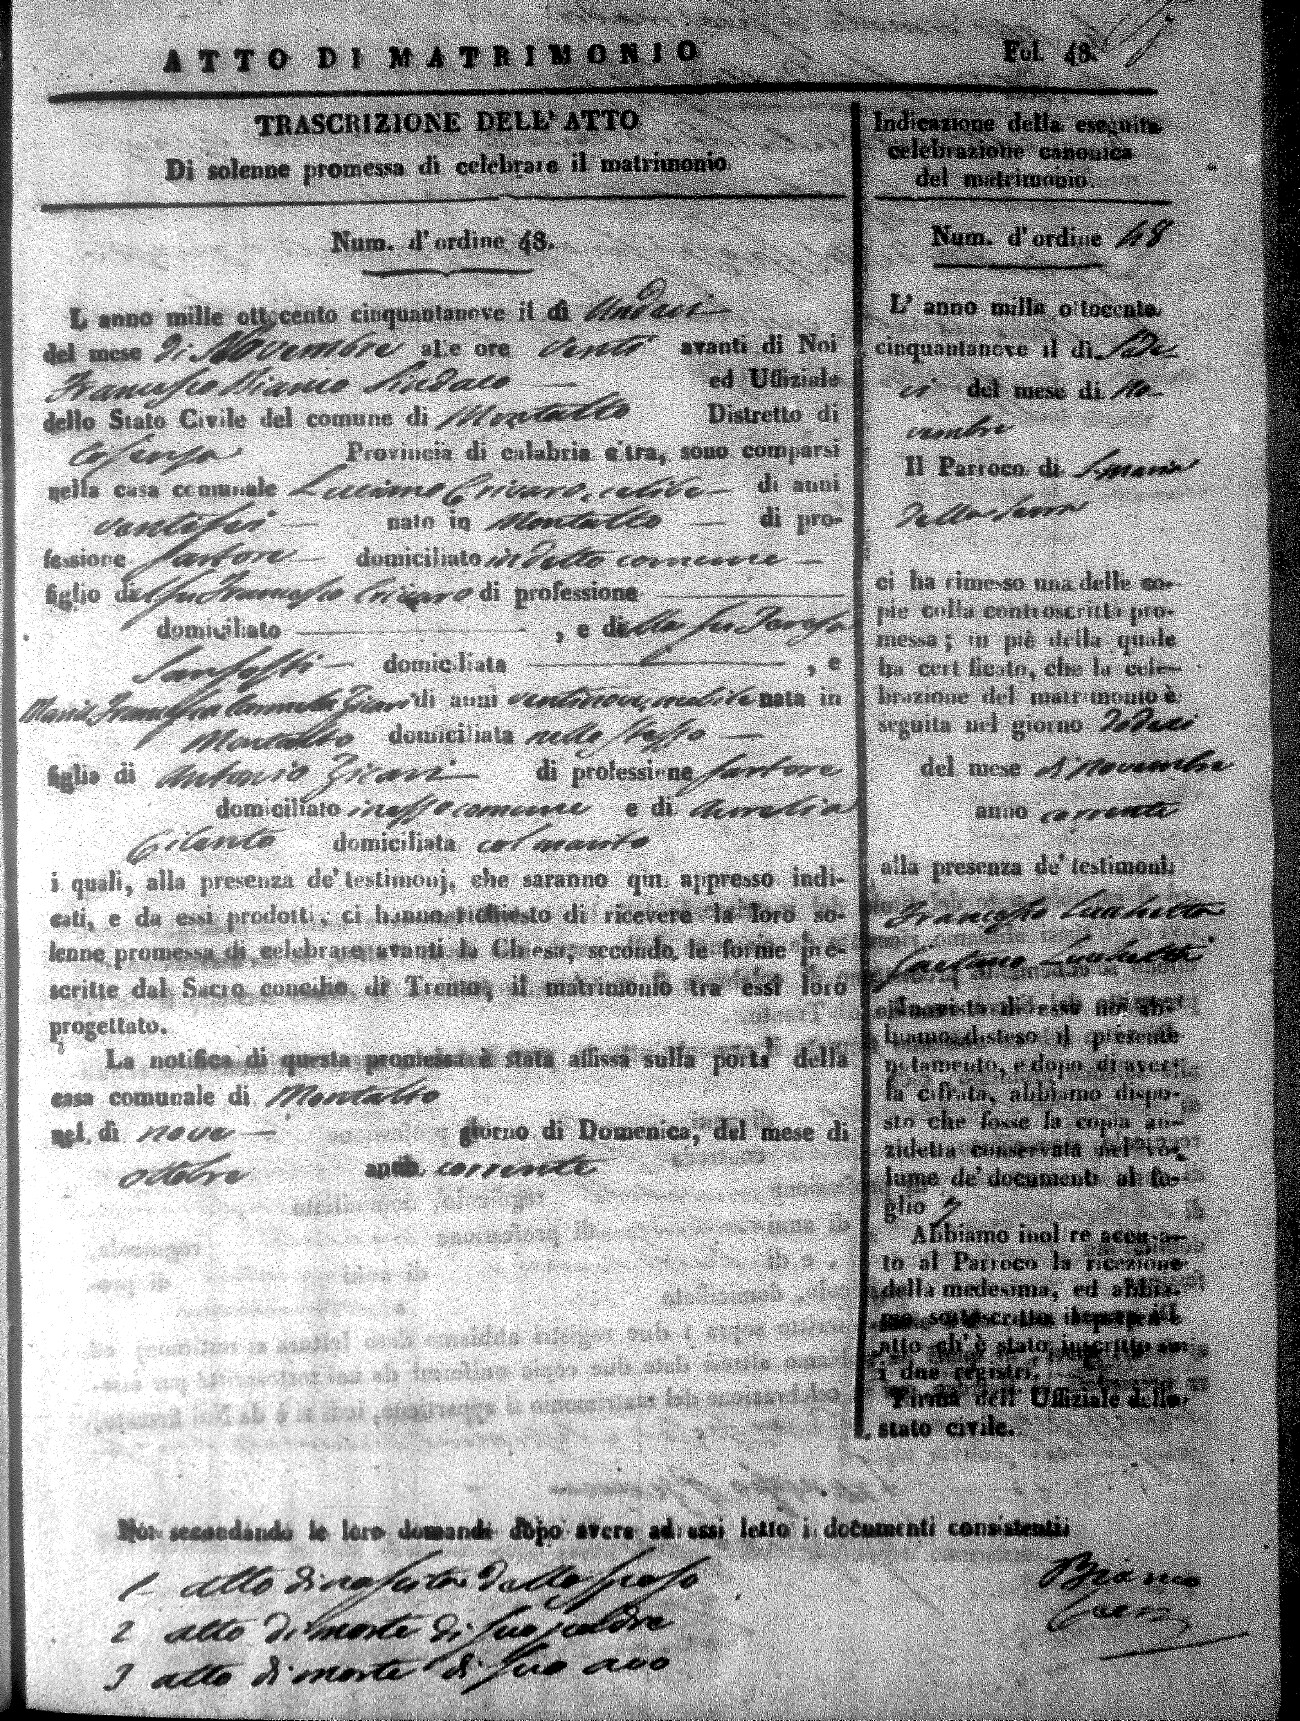 ATTO DI MATRIMONIO
Fol. 48.
TRASCRIZIONE DELL' ATTO
Di solenne promessa di celebrare il matrimonio
Num. d'ordine 48.
L anno mille ottocento cinquantanove il dì Undeci
del mese di Novembre alle ore venti avanti di Noi
Francesco Bianco Sindaco ed Uffiziale
dello Stato Civile del comune di Montalto Distretto di
Cosenza Provincia di calabria citra, sono comparsi
nella casa comunale Luciano Crivaro, celibe di anni
ventisei nato in Montalto di pro-
fessione sartore domiciliato in detto comune
figlio del fu Francesco Crivaro di professione
domiciliato , e della fu Teresa
domiciliata , e
Maria Francesca Carmela Zicari di anni ventinove, nubile nata in
Montalto domiciliata nello stesso
figlio di Antonio Zicari di professione sartore
domiciliato in esso comune e di Aurelia
Gilento domiciliata col marito
i quali, alla presenza de' testimonj, che saranno qui appresso indi-
cati, e da essi prodotti, ci hanno richiesto di ricevere la loro so-
lenne promessa di celebrare avanti la Chiesa, secondo le forme pre-
scritte dal Sacro concilio di Trento, il matrimonio tra essi loro
progettato.
La notifica di questa promessa è stata affissa sulla porta della
casa comunale di Montalto
nel dì nove giorno di Domenica, del mese di
ottobre anno corrente
Indicazione della eseguita
celebrazione canonica
del matrimonio.
Num. d'ordine 48
L' anno mille ottocento
cinquantanove il dì Sede-
ci del mese di No-
vembre
Il Parroco di S. Maria
della Serra
ci ha rimesso una delle co-
pie colla controscritta pro-
messa; in piè della quale
ha certificato, che la cele-
brazione del matrimonio è
seguita nel giorno dodeci
del mese di Novembre
anno corrente
alla presenza de' testimoni
Francesco Lucchetta
Gaetano Lucchetta
In vista di esso noi ab-
biamo disteso il presente
notamento, e dopo di aver-
la cifrata, abbiamo dispo-
sto che fosse la copia an-
zidetta conservata nel vo-
lume de' documenti al fo-
glio
Abbiamo inol re accusa-
to al Parroco la ricezione
della medesima, ed abbia-
mo sottoscritto il presente
atto ch' è stato inscritto su
i due registri.
Firma dell' Uffiziale dello
stato civile.
Noi secondando le loro domande dopo avere ad essi letto i documenti consistenti
1 atto di nascita dello sposo
2 atto di morte di suo padre
3 atto di morte di suo avo
Bianco